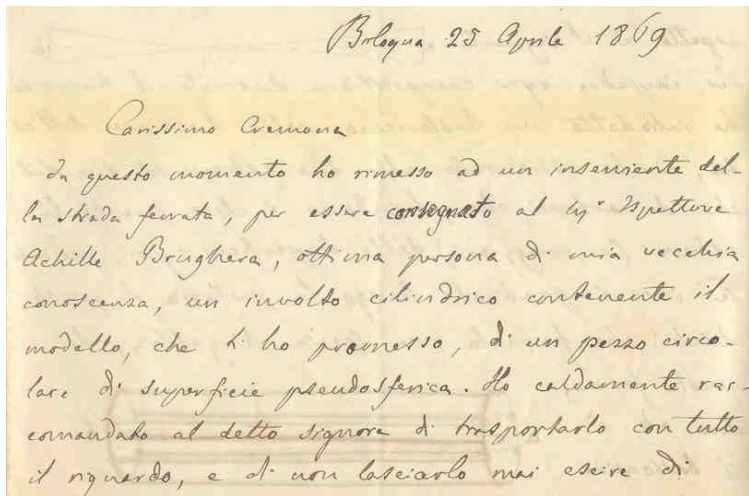 Bologna 25 Aprile 1869
Carissimo Cremona
In questo momento ho rimesso ad un inserviente del-
la strada ferrata, per essere consegnato al Sigr Ispettore
Achille Brughera, ottima persona di mia vecchia
conoscenza, un involto cilindrico contenente il
modello, che ti ho promesso, di un pezzo circo-
lare di superficie pseudosferica. Ho caldamente rac-
comandato al detto signore di trasportarlo con tutto
il riguardo, e di non lasciarlo mai escire di